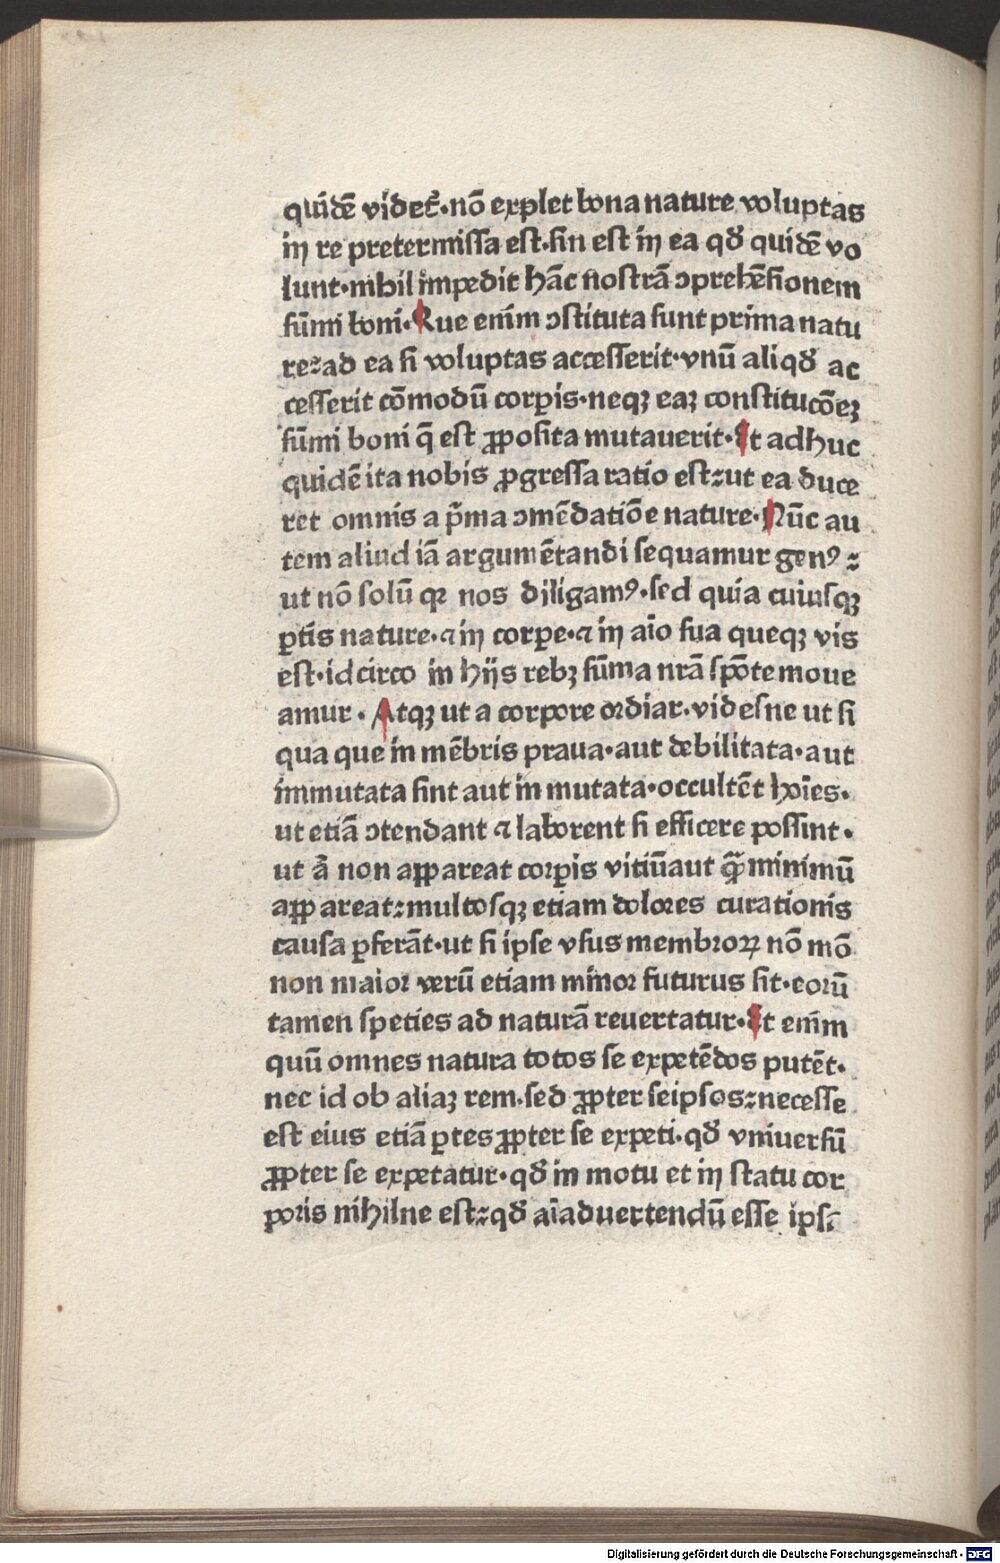 quidē videt᷑·nō explet bona nature voluptas
in re pretermissa est·sin est in ea qđ quidē vo
lunt·nihil impedit hāc nostrā ↄprehēsionem
sūmi boni·Que enim ↄstituta sunt prima natu
re:ad ea si voluptas accesserit·vnū aliqđ ac
cesserit cōmodū corꝑis·neqꝫ eaꝫ constitucōeꝫ
sūmi boni q̄ est ꝓposita mutauerit·Et adhuc
quidē ita nobis ꝓgressa ratio est:ut ea duce
ret omnis a p̄ma ↄmēdatiōe nature·Nūc au
tem aliud iā argumētandi sequamur genꝰ:
ut nō solū qꝛ nos diligamꝰ·sed quia cuiusqꝫ
ꝑtis nature·⁊ in corꝑe·⁊ in aīo sua queqꝫ vis
est·idcirco in hijs rebꝫ sūma nr̄a spōte moue
amur·Atqꝫ ut a corpore ordiar·videsne ut si
qua que in mēbris praua·aut debilitata·aut
immutata sint aut in mutata·occultēt hoīes·
ut etiā ↄtendant ⁊ laborent si efficere possint·
ut ā non apꝑareat corꝑis vitiū aut q̄̈ minimū
apꝑareat:multosqꝫ etiam dolores curationis
causa ꝑferāt·ut si ipse vsus membroꝝ nō mō
non maior verū etiam minor futurus sit·eorū
tamen speties ad naturā reuertatur·Et enim
quū omnes natura totos se expetēdos putēt·
nec id ob aliaꝫ rem·sed ꝓpter seipsos:necesse
est eius etiā ꝑtes ꝓpter se expeti·qđ vniuersū
ꝓpter se expetatur·qđ in motu et in statu cor
poris nihilne est:qđ aīaduertendū esse ipsa
Digitalisierung gefördert durch die Deutsche Forschungsgemeinschaft - DFG